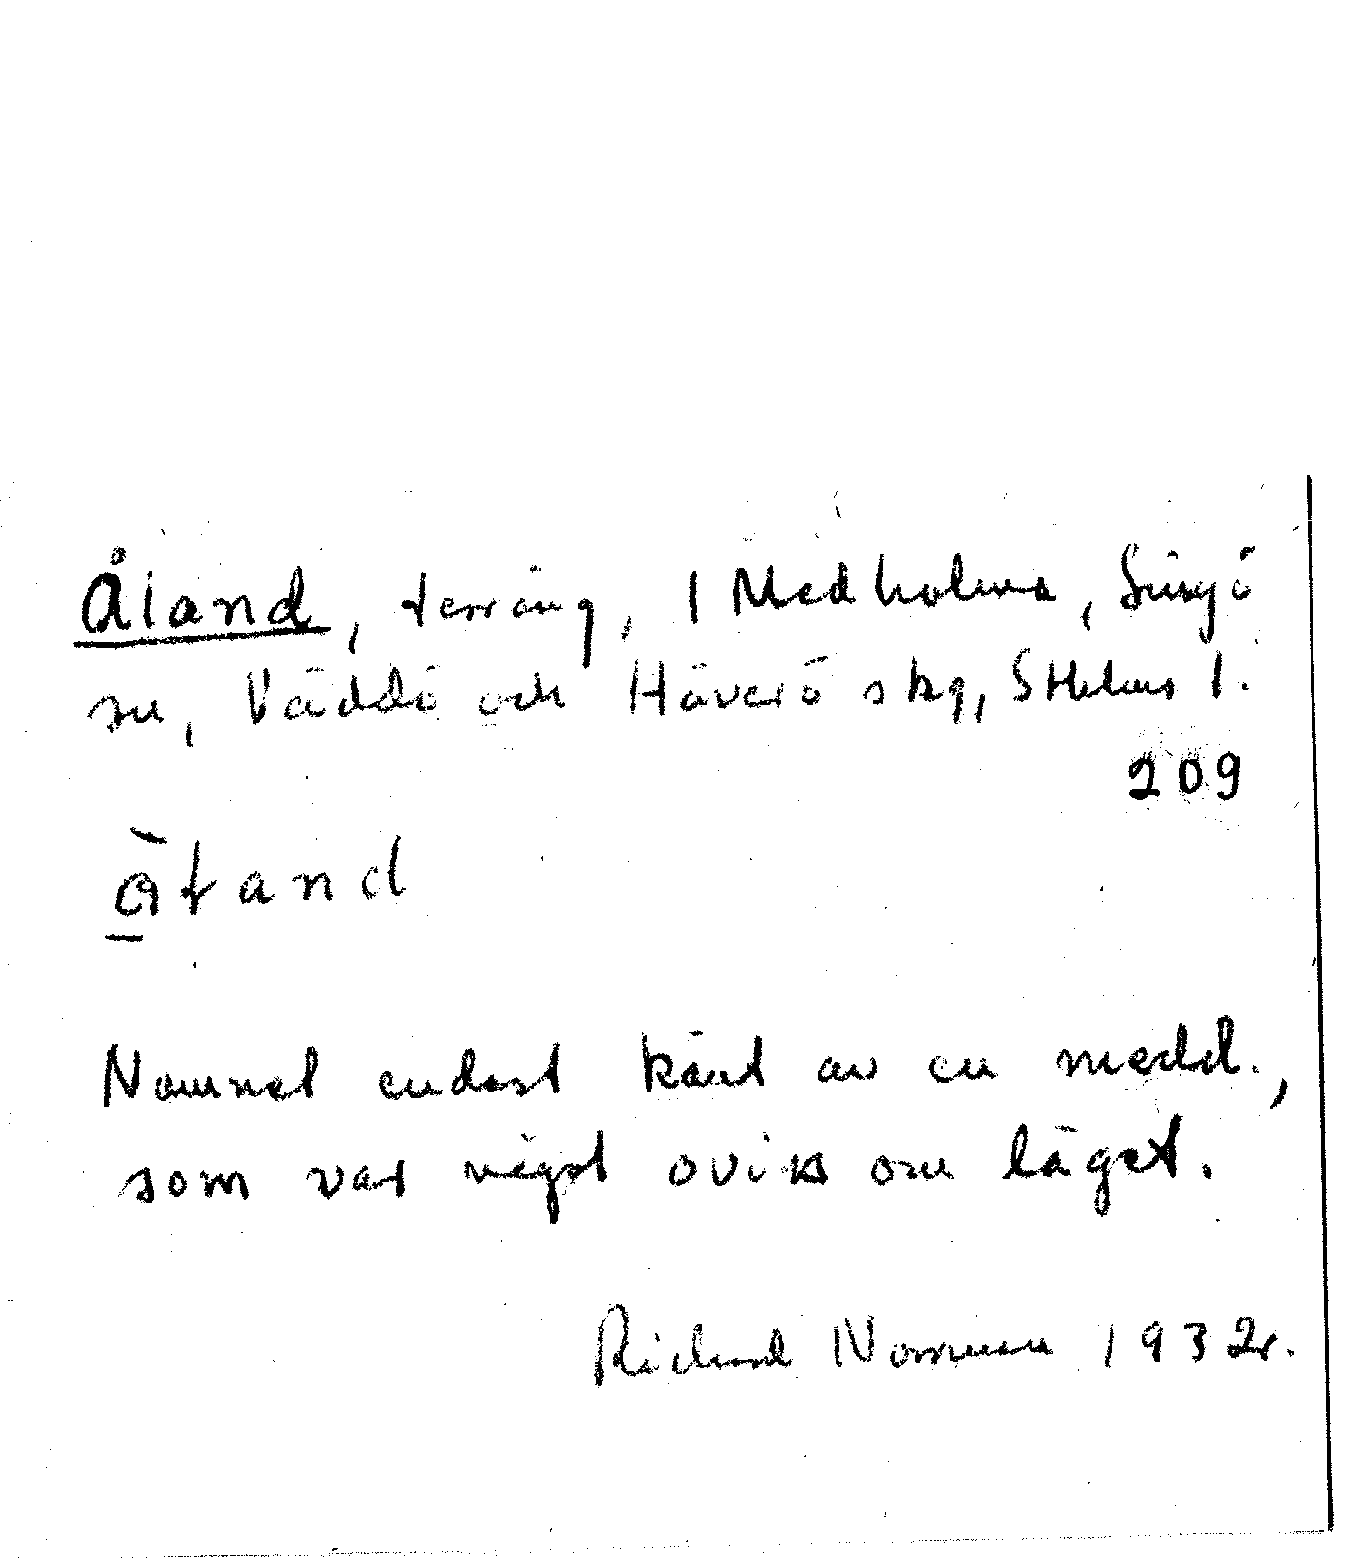 Åland, terräng, 1 Medholma, Singö
sn, Väddö och Häverö skg, Sthlms l.
209
Namnet endast känt av en medd.,
som var något oviss om läget.
Richard Norrman 1932.